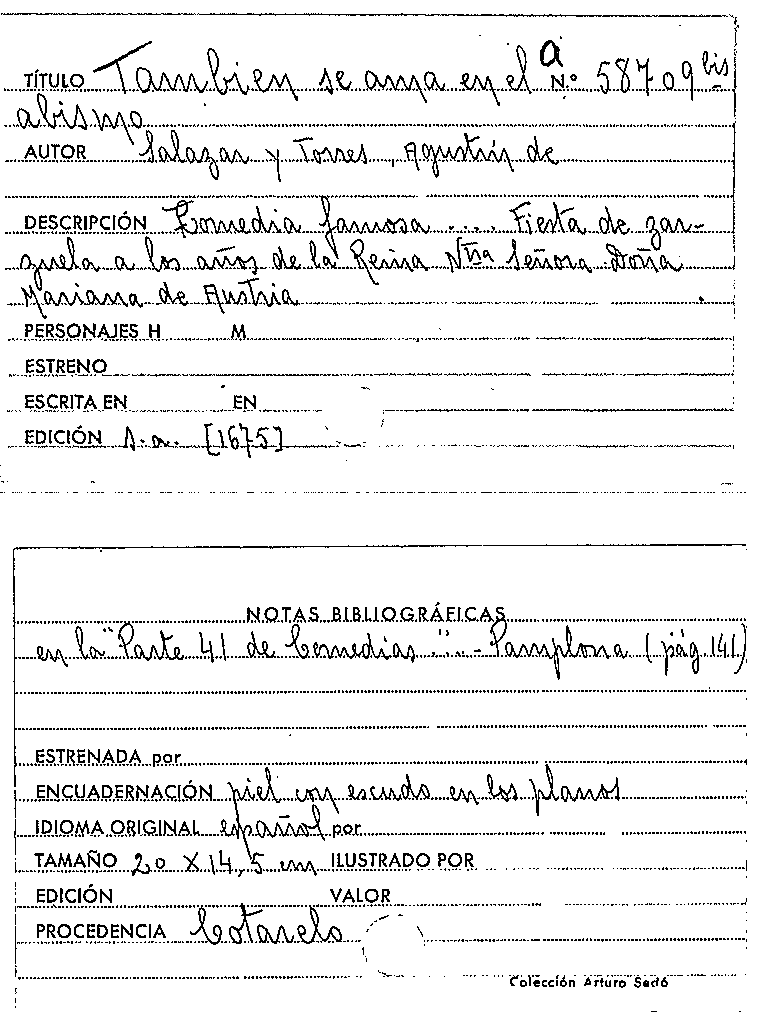 TÍTULO Tambien se ama en el a N.º 58709 bis
abismo
AUTOR Salazar y Torres, Agustín de
DESCRIPCIÓN Comedia famosa .... Fiesta de zar-
zuela a los años de la Reina Ntra Señora Doña
Mariana de Austria
PERSONAJES H M
ESTRENO
ESCRITA EN EN
EDICIÓN s.a. [1675]
NOTAS BIBLIOGRÁFICAS
en la "Parte 41 de Comedias ".. - Pamplona (pág. 141)
ESTRENADA por
ENCUADERNACIÓN piel con escudo en los planos
IDIOMA ORIGINAL español por
TAMAÑO 20 X 14,5 cm ILUSTRADO POR
EDICIÓN VALOR
PROCEDENCIA Cotarelo
Colección Arturo Sedó